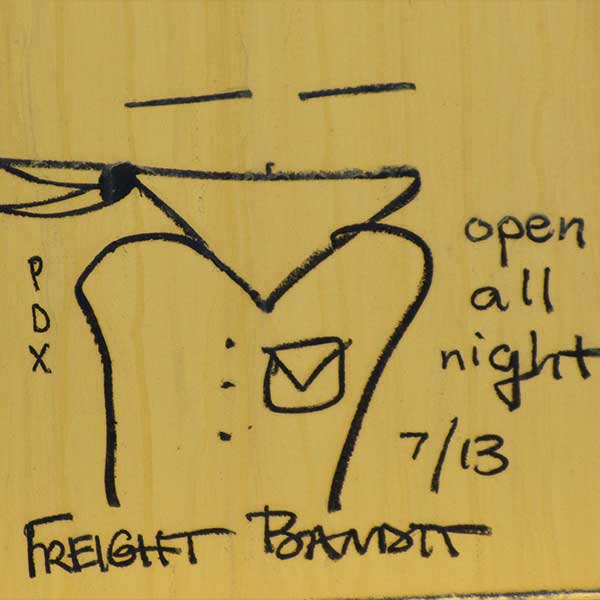 PDX
open
all
night
7/13
FREIGHT BANDIT